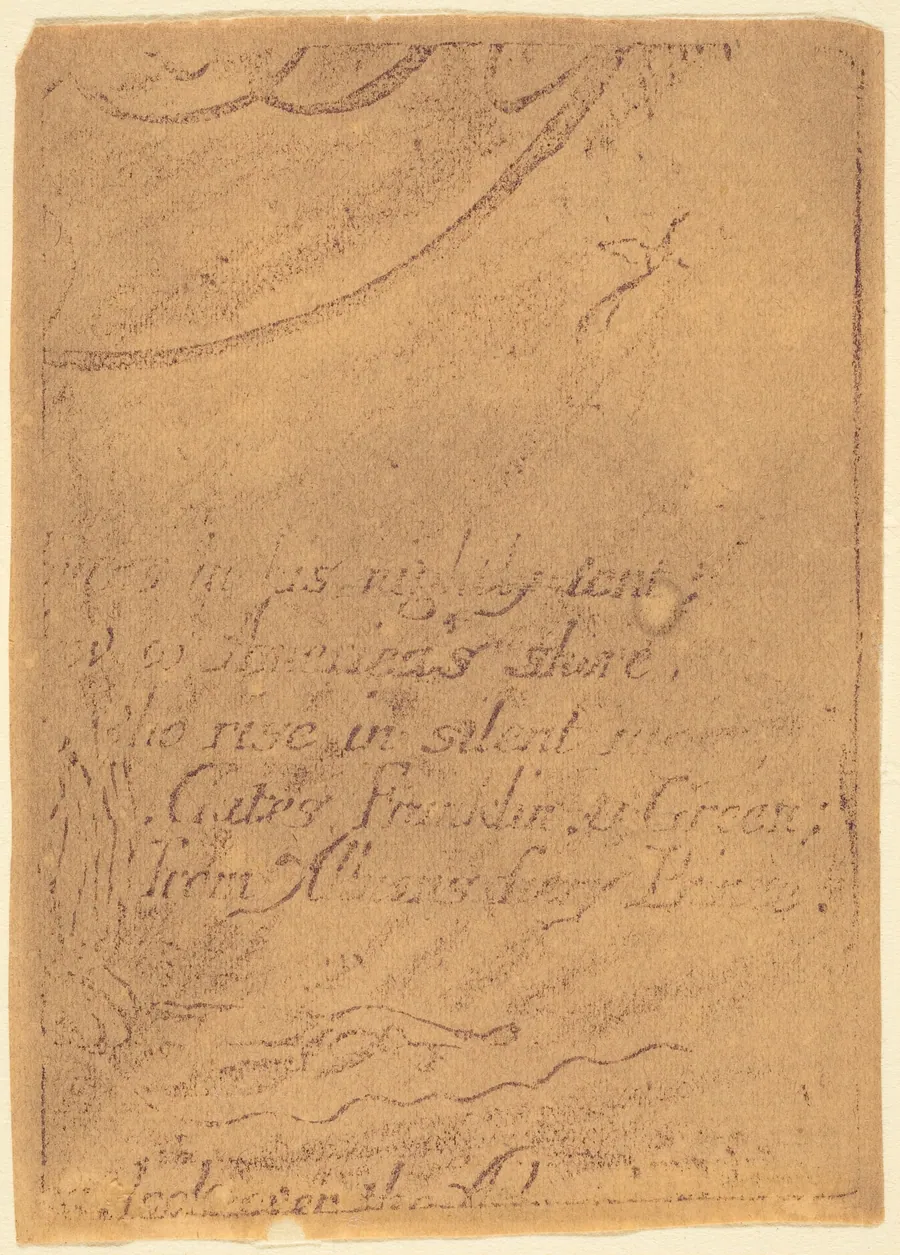 in his nightly tent;
w to Americas shore.
who rise in silent
Gates, Franklin, & Green;
from Albions fiery Prince.
look over the